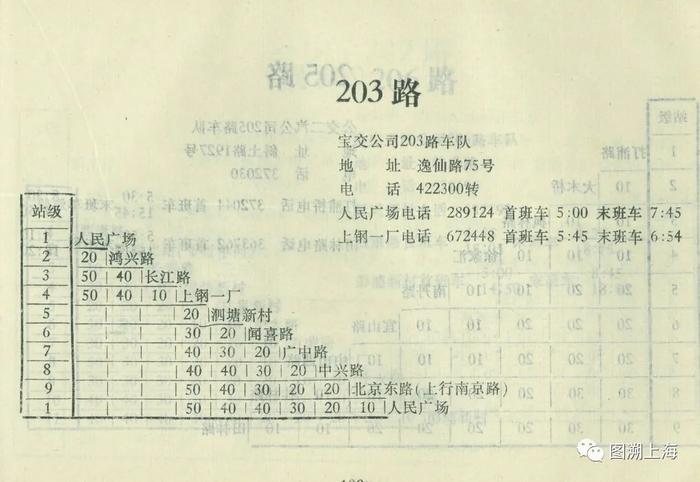 203 路
宝交公司203路车队
地 址 逸仙路75号
电 话 422300转
人民广场电话 289124 首班车 5:00 末班车 7:45
上钢一厂电话 672448 首班车 5:45 末班车 6:54
站级
1 人民广场
2 20 鸿兴路
3 50 40 长江路
4 50 40 10 上钢一厂
5 20 泗塘新村
6 30 20 闻喜路
7 40 30 20 广中路
8 40 40 30 20 中兴路
9 50 40 30 20 20 北京东路(上行南京路)
1 50 40 40 30 20 10 人民广场
图溯上海